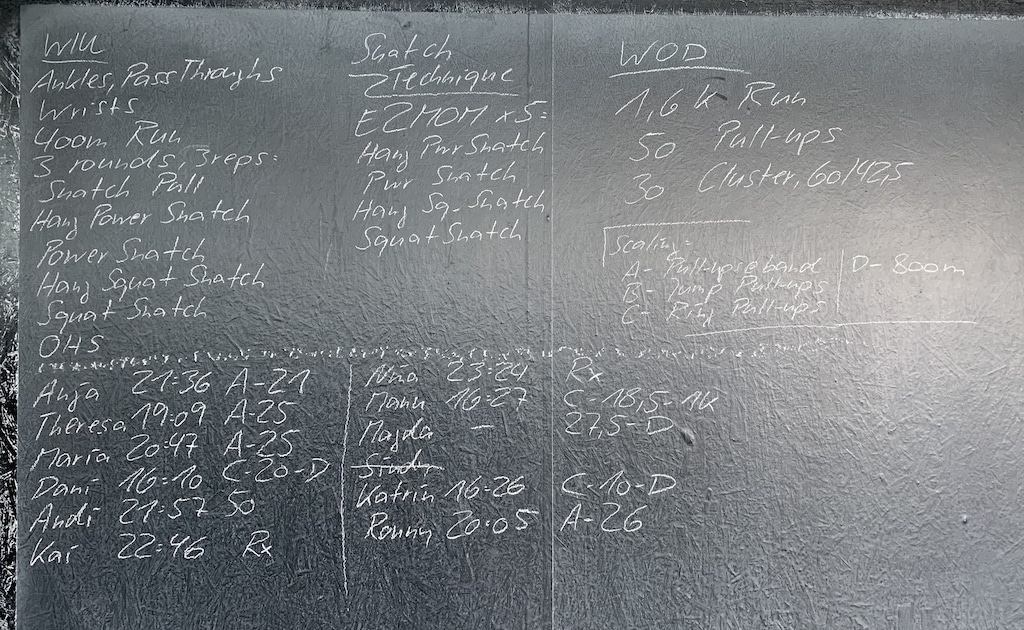 WIU
Ankles, Pass Throughs
Wrists
400m Run
3 rounds, 3 reps:
Snatch Pull
Hang Power Snatch
Power Snatch
Hang Squat Snatch
Squat Snatch
OHS
Snatch
Technique
E2MOM x 5:
Hang Pwr Snatch
Pwr Snatch
Hang Sq. Snatch
Squat Snatch
WOD
1,6 k Run
50 Pull-ups
30 Cluster, 60/42,5
Scaling:
A- Pull-ups band
B- Jump Pull-ups
C- Ring Pull-ups
D- 800m
Anja 21:36 A-21
Theresa 19:09 A-25
Maria 20:47 A-25
Dani 16:10 C-20-D
Andi 21:57 50
Kai 22:46 Rx
Nina 23:24 Rx
Manu 16:27 C-18,5-1k
Magda — 27,5-D
Sindy
Katrin 16:26 C-10-D
Ronny 20:05 A-26